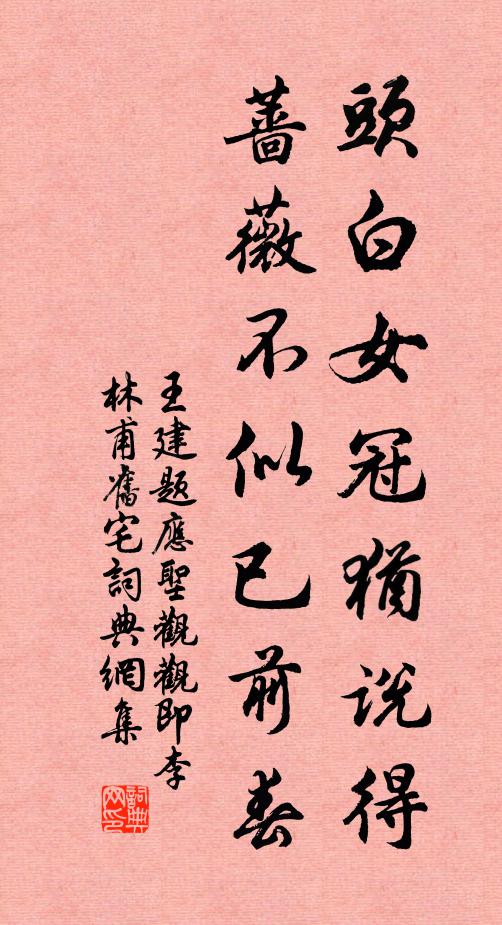 頭白女冠猶說得
薔薇不似已前春
王建題應聖觀觀即李
林甫舊宅詞典網集
詞典
网印